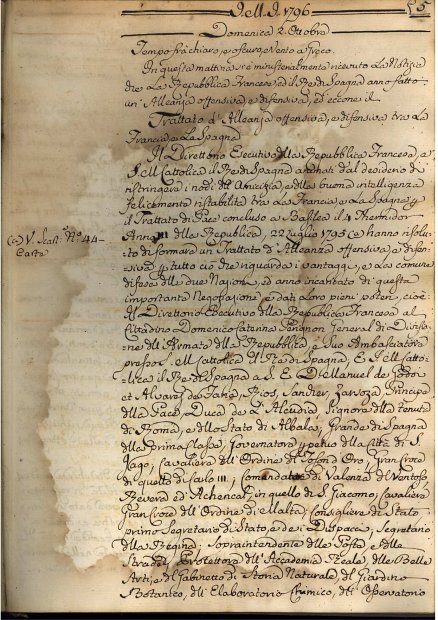 J. M. J. 1796
85
Domenica 2. Ottobre
Tempo frà chiaro, e oscuro, e vento a
In questa mattina si è ministerialmente ricevuto la Notizia
che La Repubblica Francese, ed il Re di Spagna anno fatto
un' Alleanza offensiva, e difensiva, ed eccone il
Trattato d' Alleanza offensiva, e difensiva tra La
Francia, e La Spagna
Il Direttorio Esecutivo della Repubblica Francese, e
S. M. Cattolica il Re di Spagna animati dal desiderio di
ristringere i nodi dell' Amicizia, e della buona intelligenza
felicemente ristabilita tra La Francia, e La Spagna
il Trattato di Pace concluso a Basilea il 4 Thermidor
Anno III della Repubblica, 22 luglio 1795 (a) hanno risolu-
(a) V. Scatt. N.º 44
Carta
to di formare un Trattato d' Alleanza offensiva, e difen-
siva per tutto ciò che riguarda i vantaggi, e La comune
difesa delle due Nazioni, ed anno incaricato di questa
importante Negoziazione, e dati Loro pieni poteri, cioè:
Il Direttorio Esecutivo della Repubblica Francese al
Cittadino Domenico Caterina Perignon General di Divisio-
ne dell' Armata della Repubblica, e Suo Ambasciatore
presso S. M. Cattolica il Re di Spagna, E S. M. Catto-
lica il Re di Spagna a S. E. D. Manuel de Godoi
et Alvarez de Faria, Rios, Sanchez, Zarzoza, Principe
della Pace, Duca de La Alcudia, Signore della tenuta
di Roma, e dello Stato di Albala, Grande di Spagna
della prima Classe, Governatore perpetuo della Città di S.
Jago, Cavaliere dell' Ordine del Toson d' Oro, Gran Croce
di quello di Carlo III., Comendatore di Valenza del Ventoso,
Rivera ed Achencal, in quello di S. Giacomo; Cavaliere
Gran Croce dell' Ordine di Malta; Consigliere di Stato
primo Segretario di Stato, e dei Dispacci, Segretario
della Regina, Sopraintendente delle Poste, e delle
Strade; Protettore dell' Accademia Reale delle Belle
Arti, e del Gabinetto di Storia Naturale, del Giardino
Botanico, del Elaboratorio Chimico, dell' Osservatorio